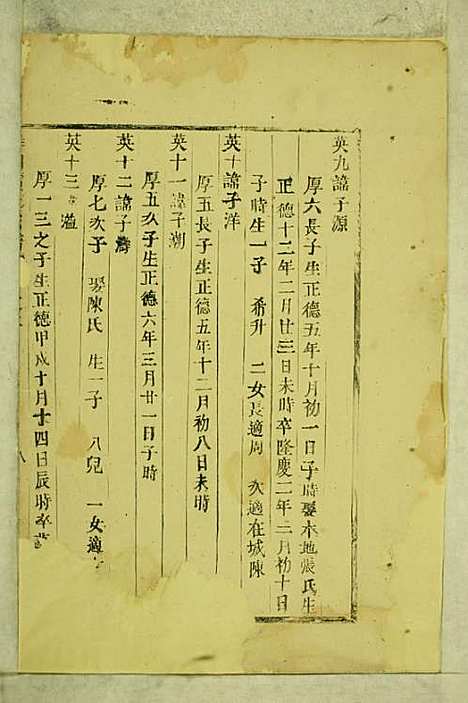 英九諱子源
厚六長子生正德五年十月初一日子時娶本地張氏生
正德十二年二月廿三日未時卒隆慶二年三月初十日
子時生一子 希升 二女長適周 次適在城陳
英十諱子洋
厚五長子生正德五年十二月初八日未時
英十一諱子潮
厚五次子生正德六年三月廿一日子時
英十二諱子濤
厚七次子 娶陳氏 生一子 八兒 一女適
英十三 溢
厚一三之子生正德甲戌十月十四日辰時卒